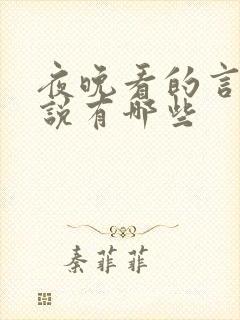 夜晚看的言
說有哪些
秦菲菲